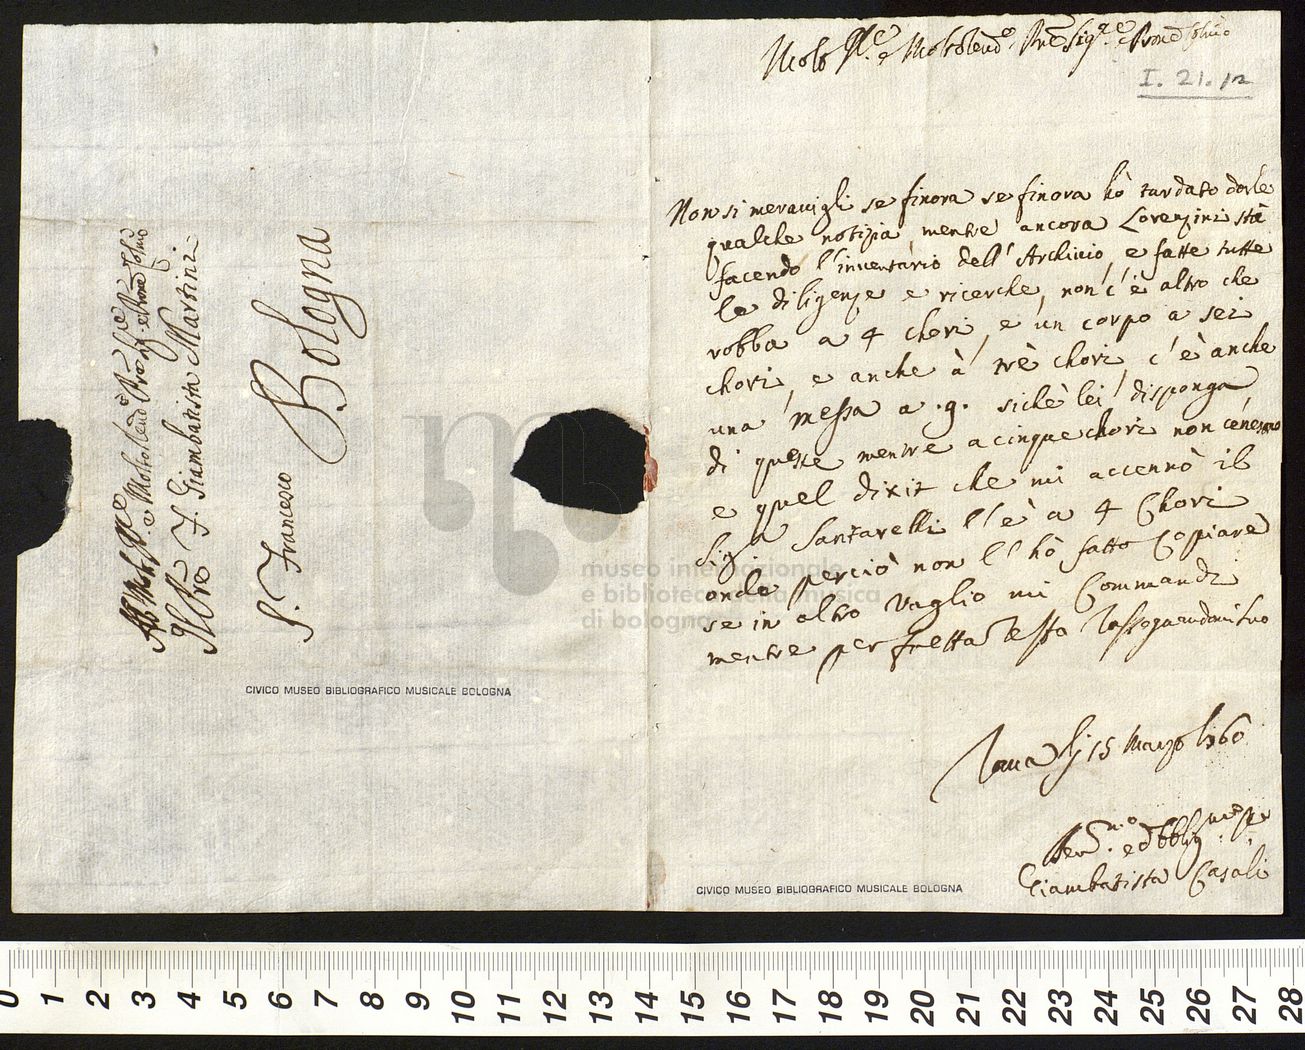 Molto Ill.e e Molto Rend.o Pre Sig.re e Prone Colmo
I. 21. 12
Non si meravigli se finora se finora hò tardato darle
qualche notizia mentre ancora Lorenzini stà
facendo l'inventario dell'Archivio, e fatte tutte
le diligenze e ricerche, non c'è altro che
robba a 4 chori, e un corpo a sei
chori, e anche à trè chori, c'è anche
una messa a .9. sichè lei disponga
di queste mentre a cinque chori non c'énesono
e quel dixit che mi accennò il
Sig.r Santarelli l'è a 4 Chori
onde perciò non l'hò fatto Copiare
se in altro vaglio mi Commandi
mentre per fretta resto rassegnandomi suo
Roma li 15 Marzo 1760
Giambatista Casali
Al Molt. Ill.e e Molto Rendo Pre Sig.e e Prone Colmo
Il Pre F. Giambatista Martini
S. Francesco
Bologna
museo internazionale
e biblioteca della musica
di bologna
CIVICO MUSEO BIBLIOGRAFICO MUSICALE BOLOGNA
CIVICO MUSEO BIBLIOGRAFICO MUSICALE BOLOGNA
0 1 2 3 4 5 6 7 8 9 10 11 12 13 14 15 16 17 18 19 20 21 22 23 24 25 26 27 28